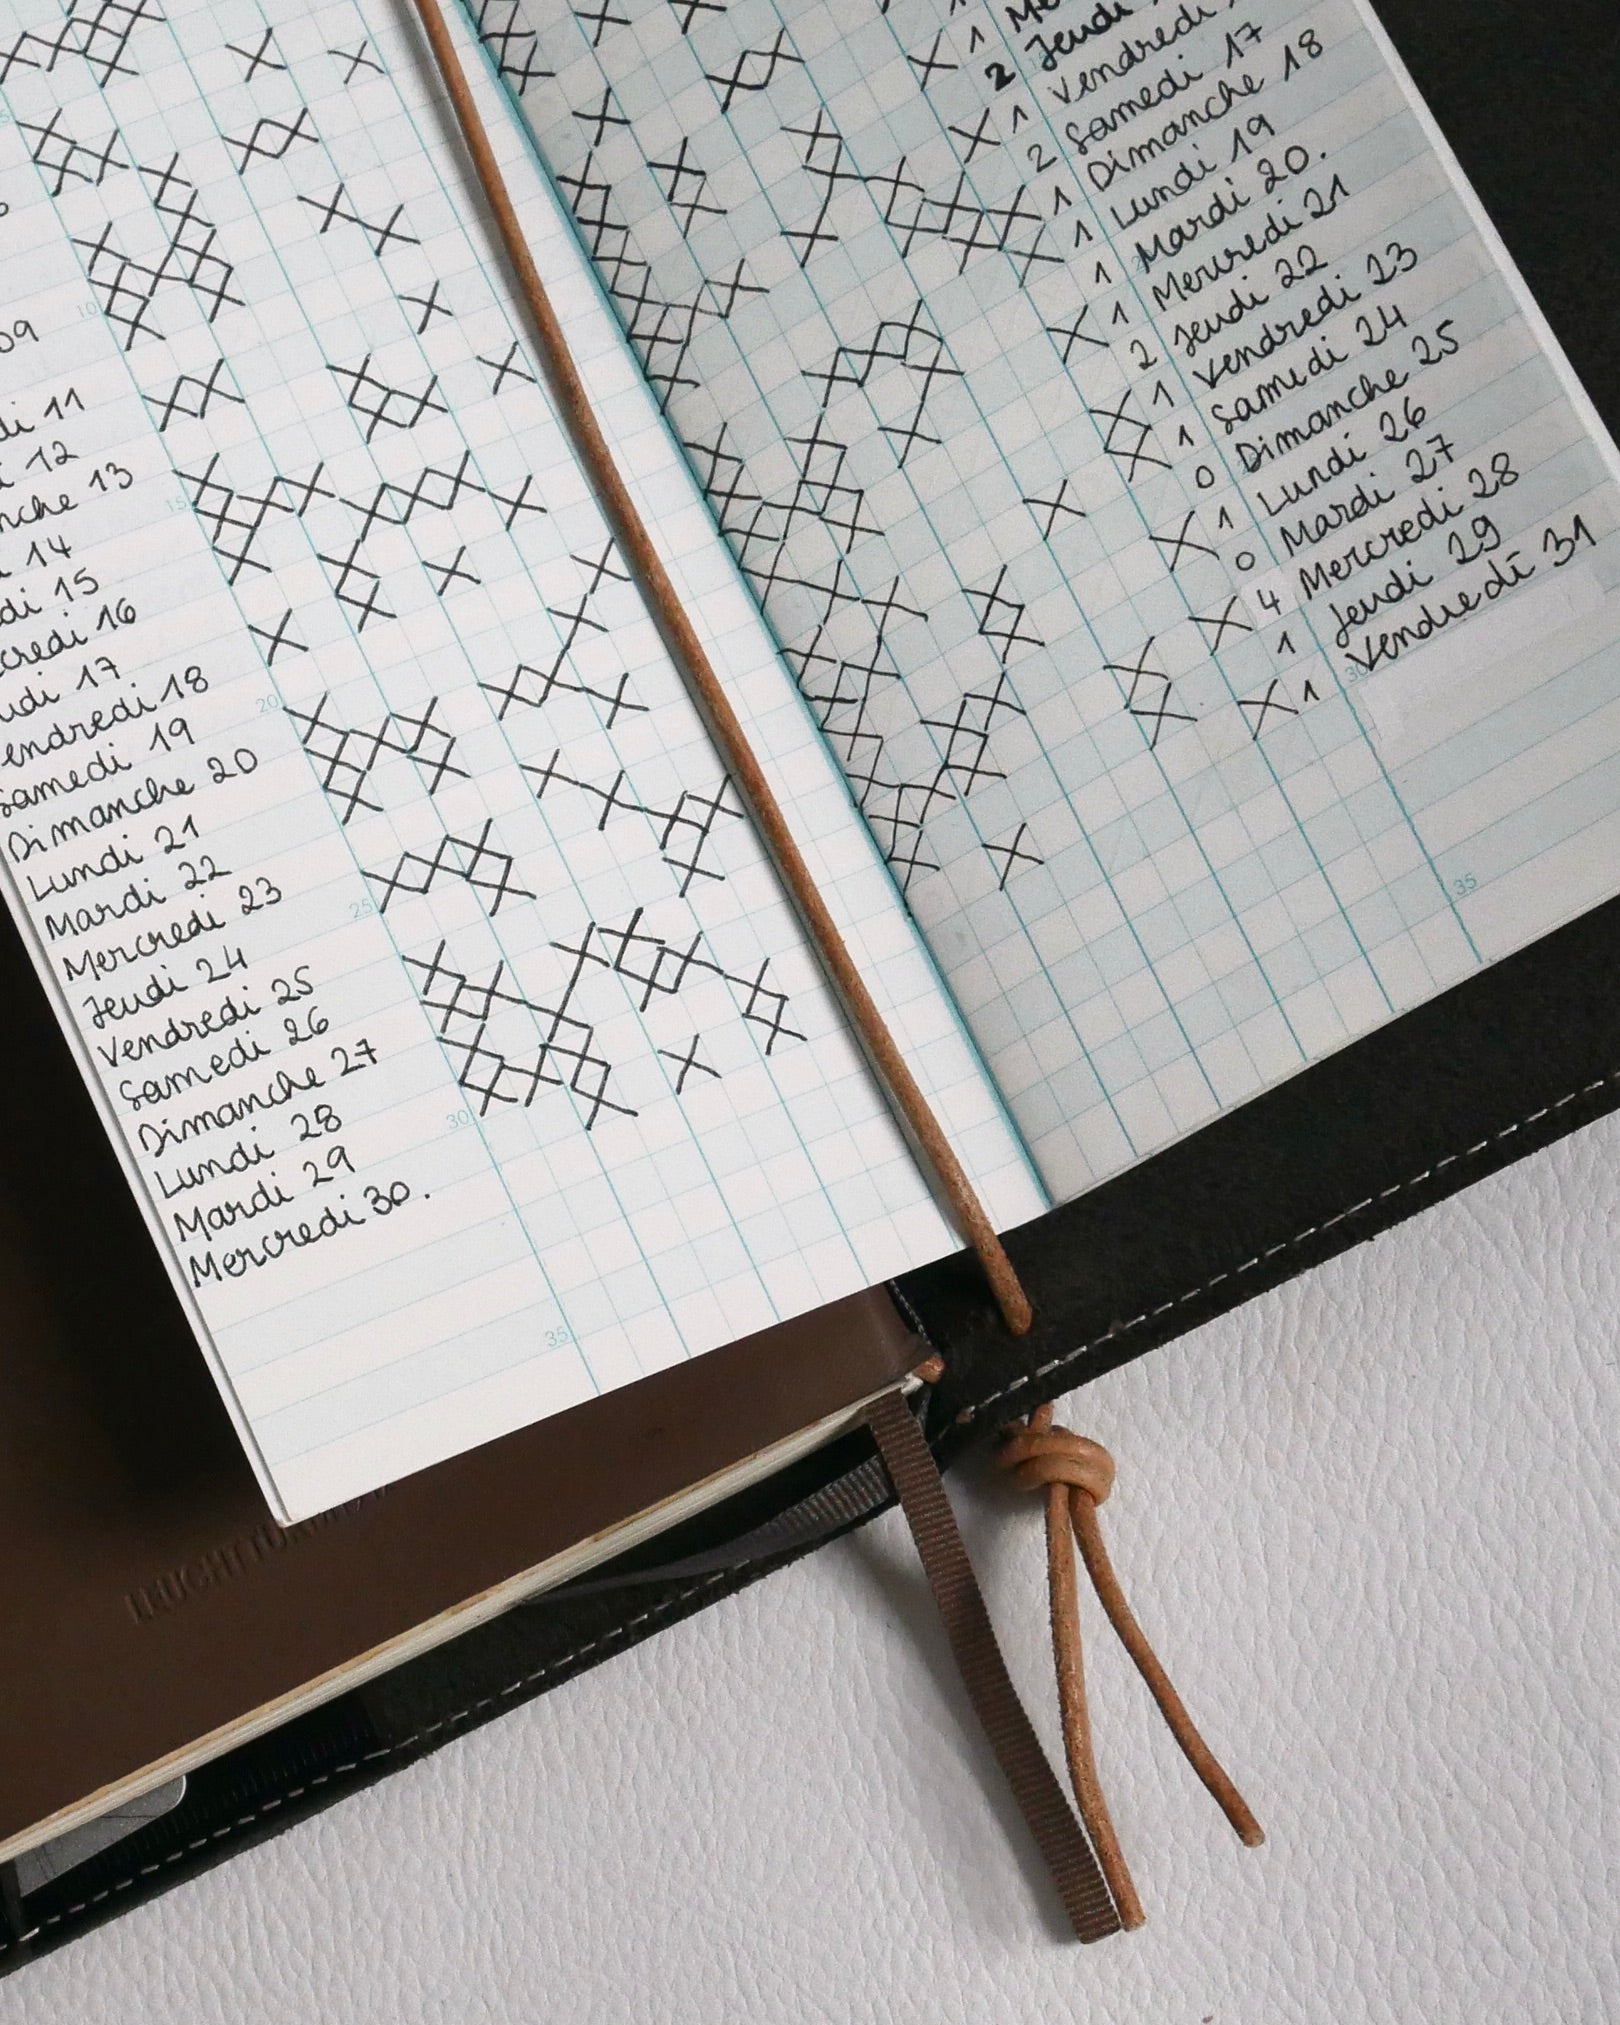 09
di 11
12
nche 13
14
di 15
credi 16
udi 17
endredi 18
Samedi 19
Dimanche 20
Lundi 21
Mardi 22
Mercredi 23
Jeudi 24
Vendredi 25
Samedi 26
Dimanche 27
Lundi 28
Mardi 29
Mercredi 30.
10
15
20
25
30
35
1 Me
2 Jeudi
1 Vendredi
2 Samedi 17
1 Dimanche 18
1 Lundi 19
1 Mardi 20.
1 Mercredi 21
2 Jeudi 22
1 Vendredi 23
1 Samedi 24
0 Dimanche 25
1 Lundi 26
0 Mardi 27
4 Mercredi 28
1 Jeudi 29
1 Vendredi 31
30
35
LEUCHTTURM